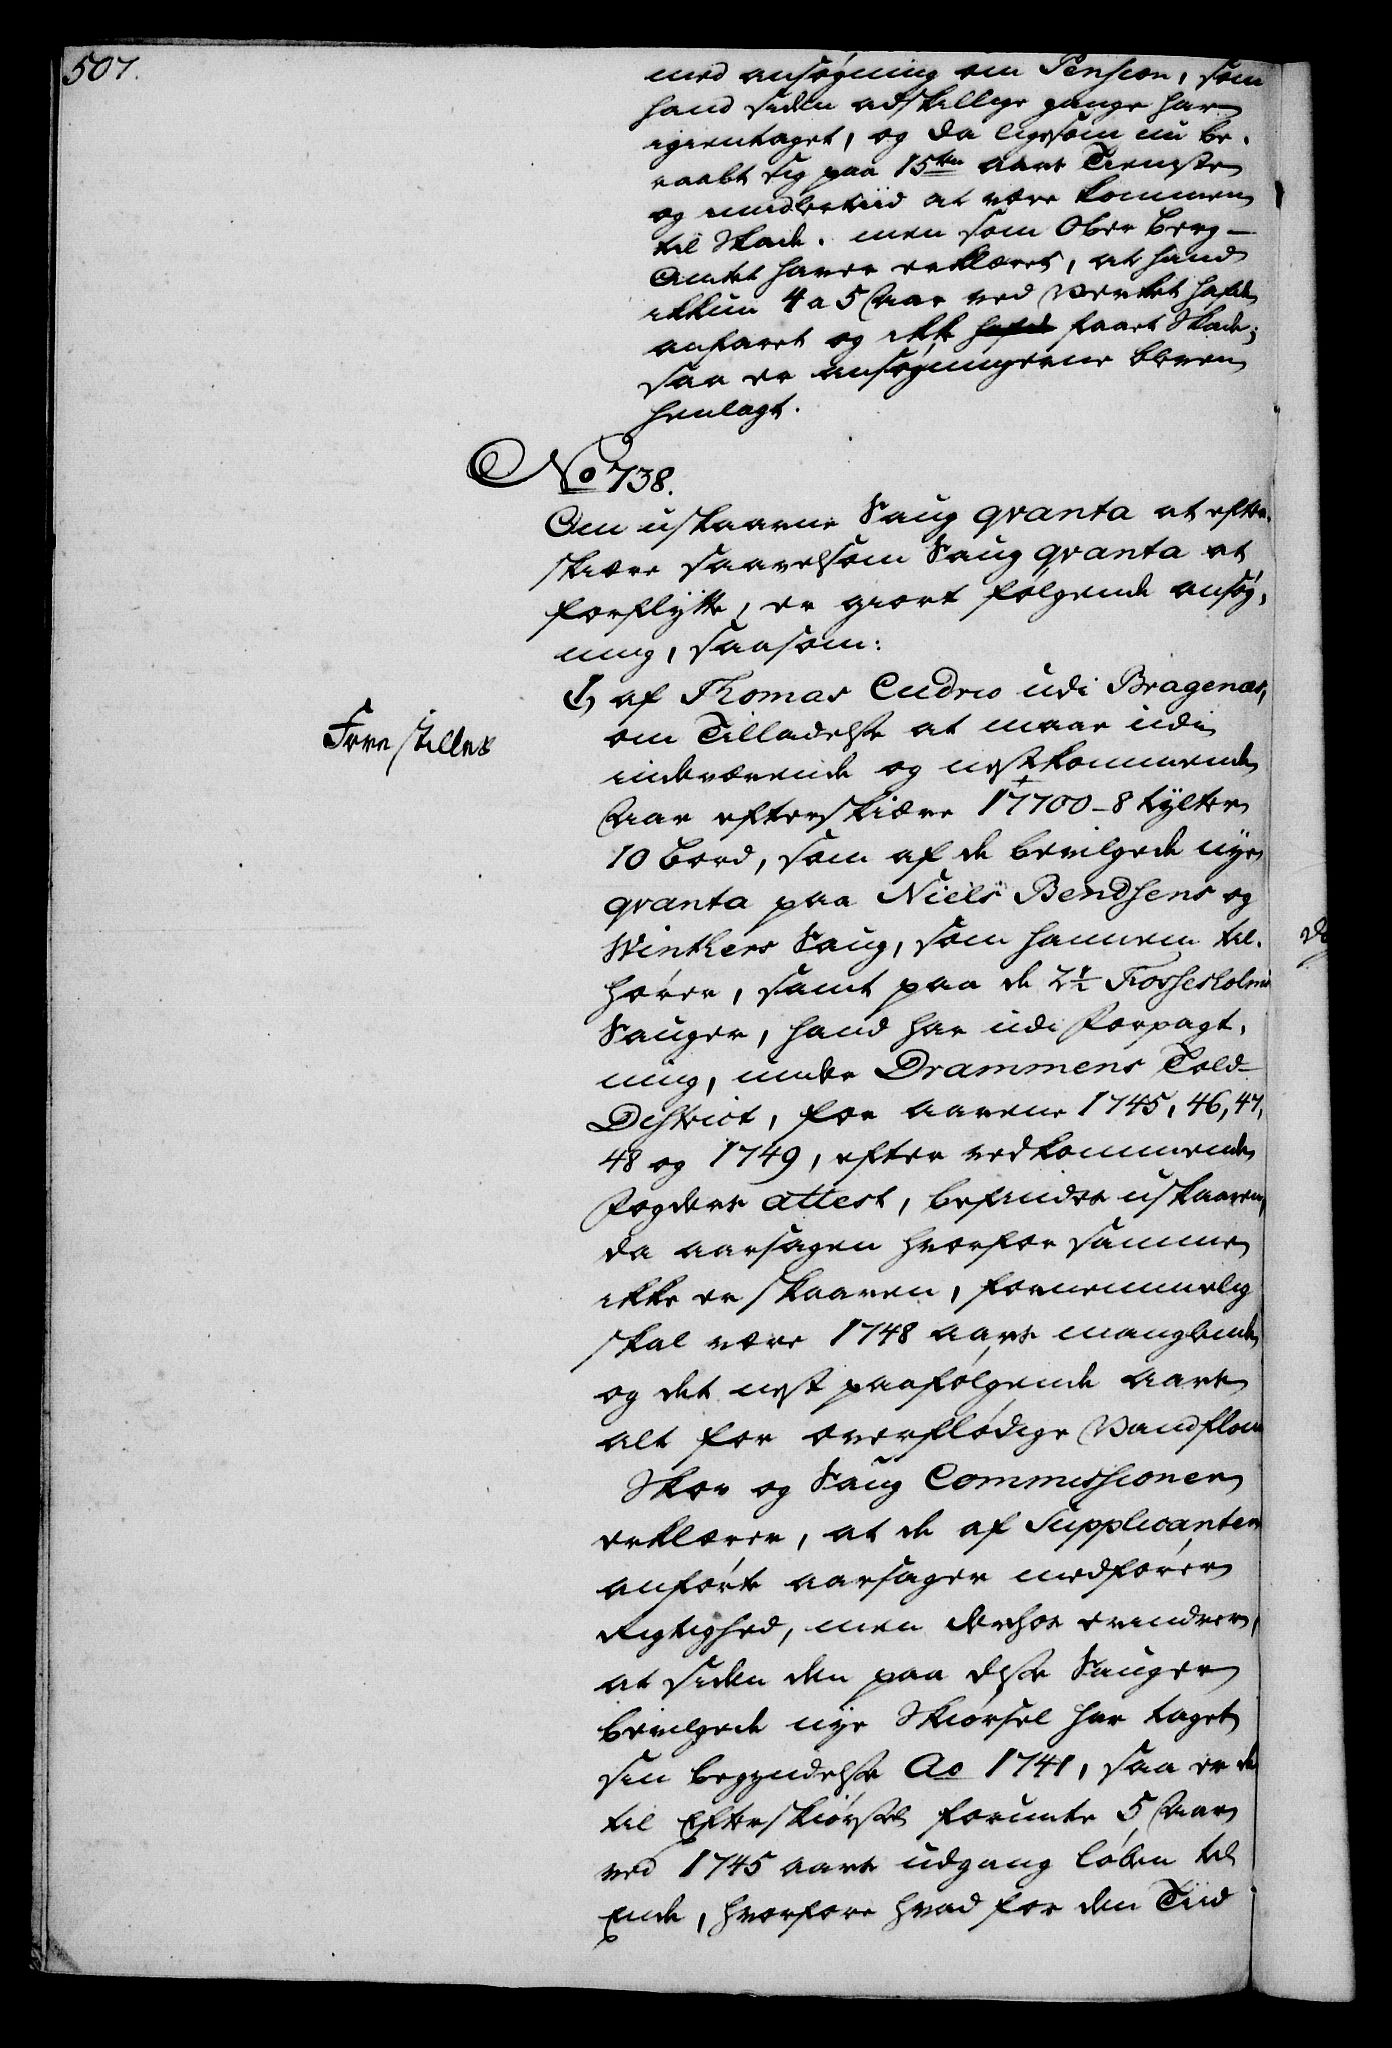 507.
med ansøgning om Pension, som
hand siden adskillige gange har
igientaget, og da ligesom nu be-
raabt sig paa 15ten aars Tieneste
og imidlertiid at være kommen
til Skade. men som Ober Berg-
Amtet haver erklæret, at hand
ikkun 4 a 5 Aar ved Verket hafde
anfaret og ikke faaet Skade;
saa er ansøgningerne bleven
henlagt.
No 738.
Om uskaarne Saug qvanta at efter-
skiære saavelsom Saug qvanta at
forflytte, er giort følgende ansøg-
ning, saasom:
1, af Thomas Cudrio udi Bragenæs,
Fore stilles
om Tilladelse at maae udi
indeværende og nestkommende
Aar efterskiære 17700 - 8 tylter
10 bord, som af de bevilgede nye
qvanta paa Niels Bendsens og
Winthers Saug, som hannem til-
hører, samt paa de 2½ Fossesholms
Sauger, hand har udi Forpagt-
ning, under Drammens Told-
District, for aarene 1745, 46, 47,
48 og 1749, efter vedkommende
Fogders attest, befindes uskaaren,
da aarsagen hvorfor samme
ikke er skaaren, fornemmelig
skal være 1748 aars manglende
og det nest paafølgende aars
alt for overflødige Vandflom
Skov og Saug Commissionen
erklærer, at de af Supplicanten
anførte aarsager medfører
Rigtighed, men derhos erindrer,
at siden den paa disse Sauger
bevilgede nye Skiørsel har taget
sin begyndelse Ao 1741, saa er de
til Efterskiørsel forundte 5 Aar
ved 1745 aars udgang løben til
Ende, hvorfore hvad for den Tiid